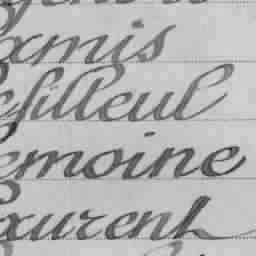 amis
efilleul
emoine
aurent